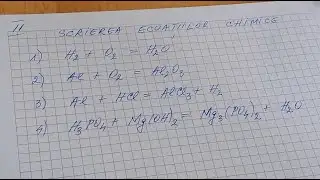 II SCRIEREA ECUAȚIILOR CHIMICE
1) H₂ + O₂ = H₂O
2) Al + O₂ = Al₂O₃
3) Al + HCl = AlCl₃ + H₂
4) H₃PO₄ + Mg(OH)₂ = Mg₃(PO₄)₂ + H₂O